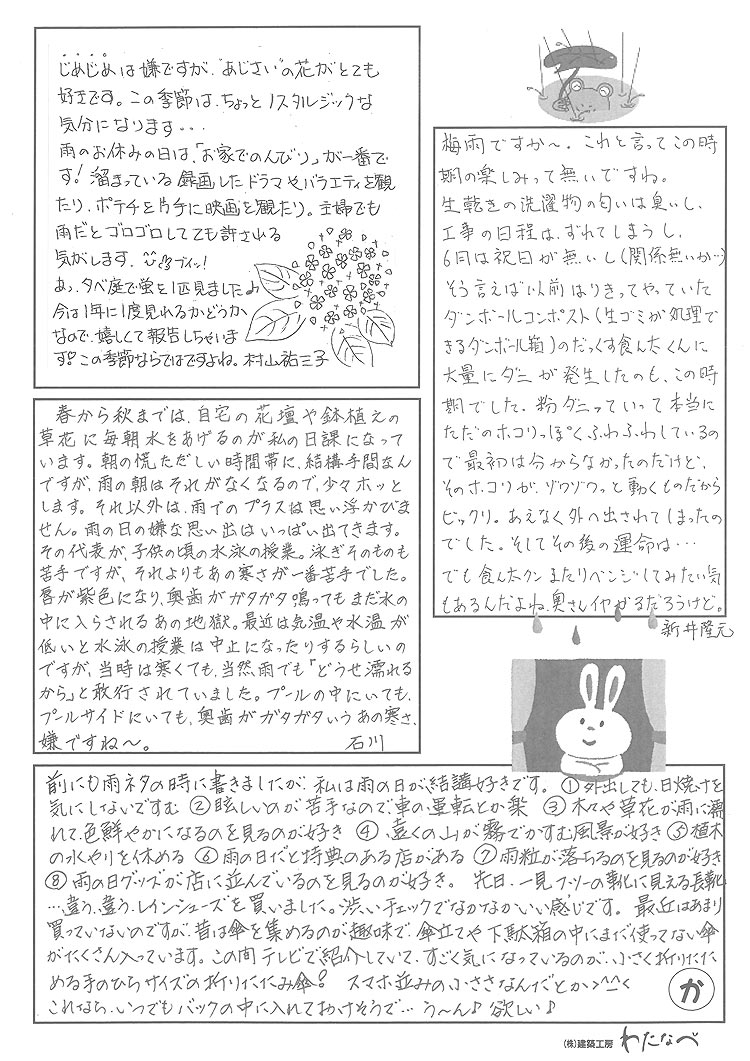 じめじめは嫌ですが、"あじさい"の花がとても
好きです。この季節は、ちょっとノスタルジックな
気分になります・・・
雨のお休みの日は、「お家でのんびり」が一番で
す！溜まっている録画したドラマやバラエティを観
たり、ポテチを片手に映画を観たり。主婦でも
雨だとゴロゴロしてても許される
気がします。
あっ、夕べ庭で蛍を1匹見ました♪
今は1年に1度見れるかどうか
なので、嬉しくて報告しちゃいま
す。この季節ならではですよね。村山祐三子
梅雨ですか〜。これと言ってこの時
期の楽しみって無いですね。
生乾きの洗濯物の匂いは臭いし、
工事の日程は、ずれてしまうし、
6月は祝日が無いし(関係無いか…)
そう言えば以前はりきってやっていた
ダンボールコンポスト(生ゴミが処理で
きるダンボール箱)のだっくす食ん太くんに
大量にダニが発生したのも、この時
期でした。粉ダニっていって本当に
ただのホコリっぽくふわふわしているの
で最初は分からなかったのだけど、
そのホコリが、ゾワゾワっと動くものだから
ビックリ。あえなく外へ出されてしまったの
でした。そしてその後の運命は…
でも食ん太クンまたリベンジしてみたい気
もあるんだよね、奥さんイヤがるだろうけど。
新井隆元
春から秋までは、自宅の花壇や鉢植えの
草花に毎朝水をあげるのが私の日課になって
います。朝の慌ただしい時間帯に、結構手間なん
ですが、雨の朝はそれがなくなるので、少々ホッと
します。それ以外は、雨でのプラスは思い浮かびま
せん。雨の日の嫌な思い出はいっぱい出てきます。
その代表が、子供の頃の水泳の授業。泳ぎそのものも
苦手ですが、それよりもあの寒さが一番苦手でした。
唇が紫色になり、奥歯がガタガタ鳴ってもまだ水の
中に入らされるあの地獄。最近は気温や水温が
低いと水泳の授業は中止になったりするらしいの
ですが、当時は寒くても、当然、雨でも「どうせ濡れる
から」と敢行されていました。プールの中にいても、
プールサイドにいても、奥歯がガタガタいうあの寒さ、
嫌ですね〜。 石川
前にも雨ネタの時に書きましたが、私は雨の日が結講好きです。①外出しても、日焼けを
気にしないですむ ②眩しいのが苦手なので、車の運転とか楽 ③木々や草花が雨に濡
れて、色鮮やかになるのを見るのが好き ④遠くの山が霧でかすむ風景が好き ⑤植木
の水やりを休める ⑥雨の日だと特典のある店がある ⑦雨粒が落ちるのを見るのが好き
⑧雨の日グッズが店に並んでいるのを見るのが好き。 先日、一見フツーの靴に見える長靴
…違う、違う、レインシューズを買いました。渋いチェックでなかなかいい感じです。最近はあまり
買っていないのですが、昔は傘を集めるのが趣味で、傘立てや下駄箱の中にまだ使ってない傘
がたくさん入っています。この間テレビで紹介していて、すごく気になっているのが、小さく折りたた
める手のひらサイズの折りたたみ傘！ スマホ並みの小ささなんだとか>^_^<
これなら、いつでもバックの中に入れておけそうで… う〜ん♪ 欲しい♪
か
(株)建築工房 わたなべ